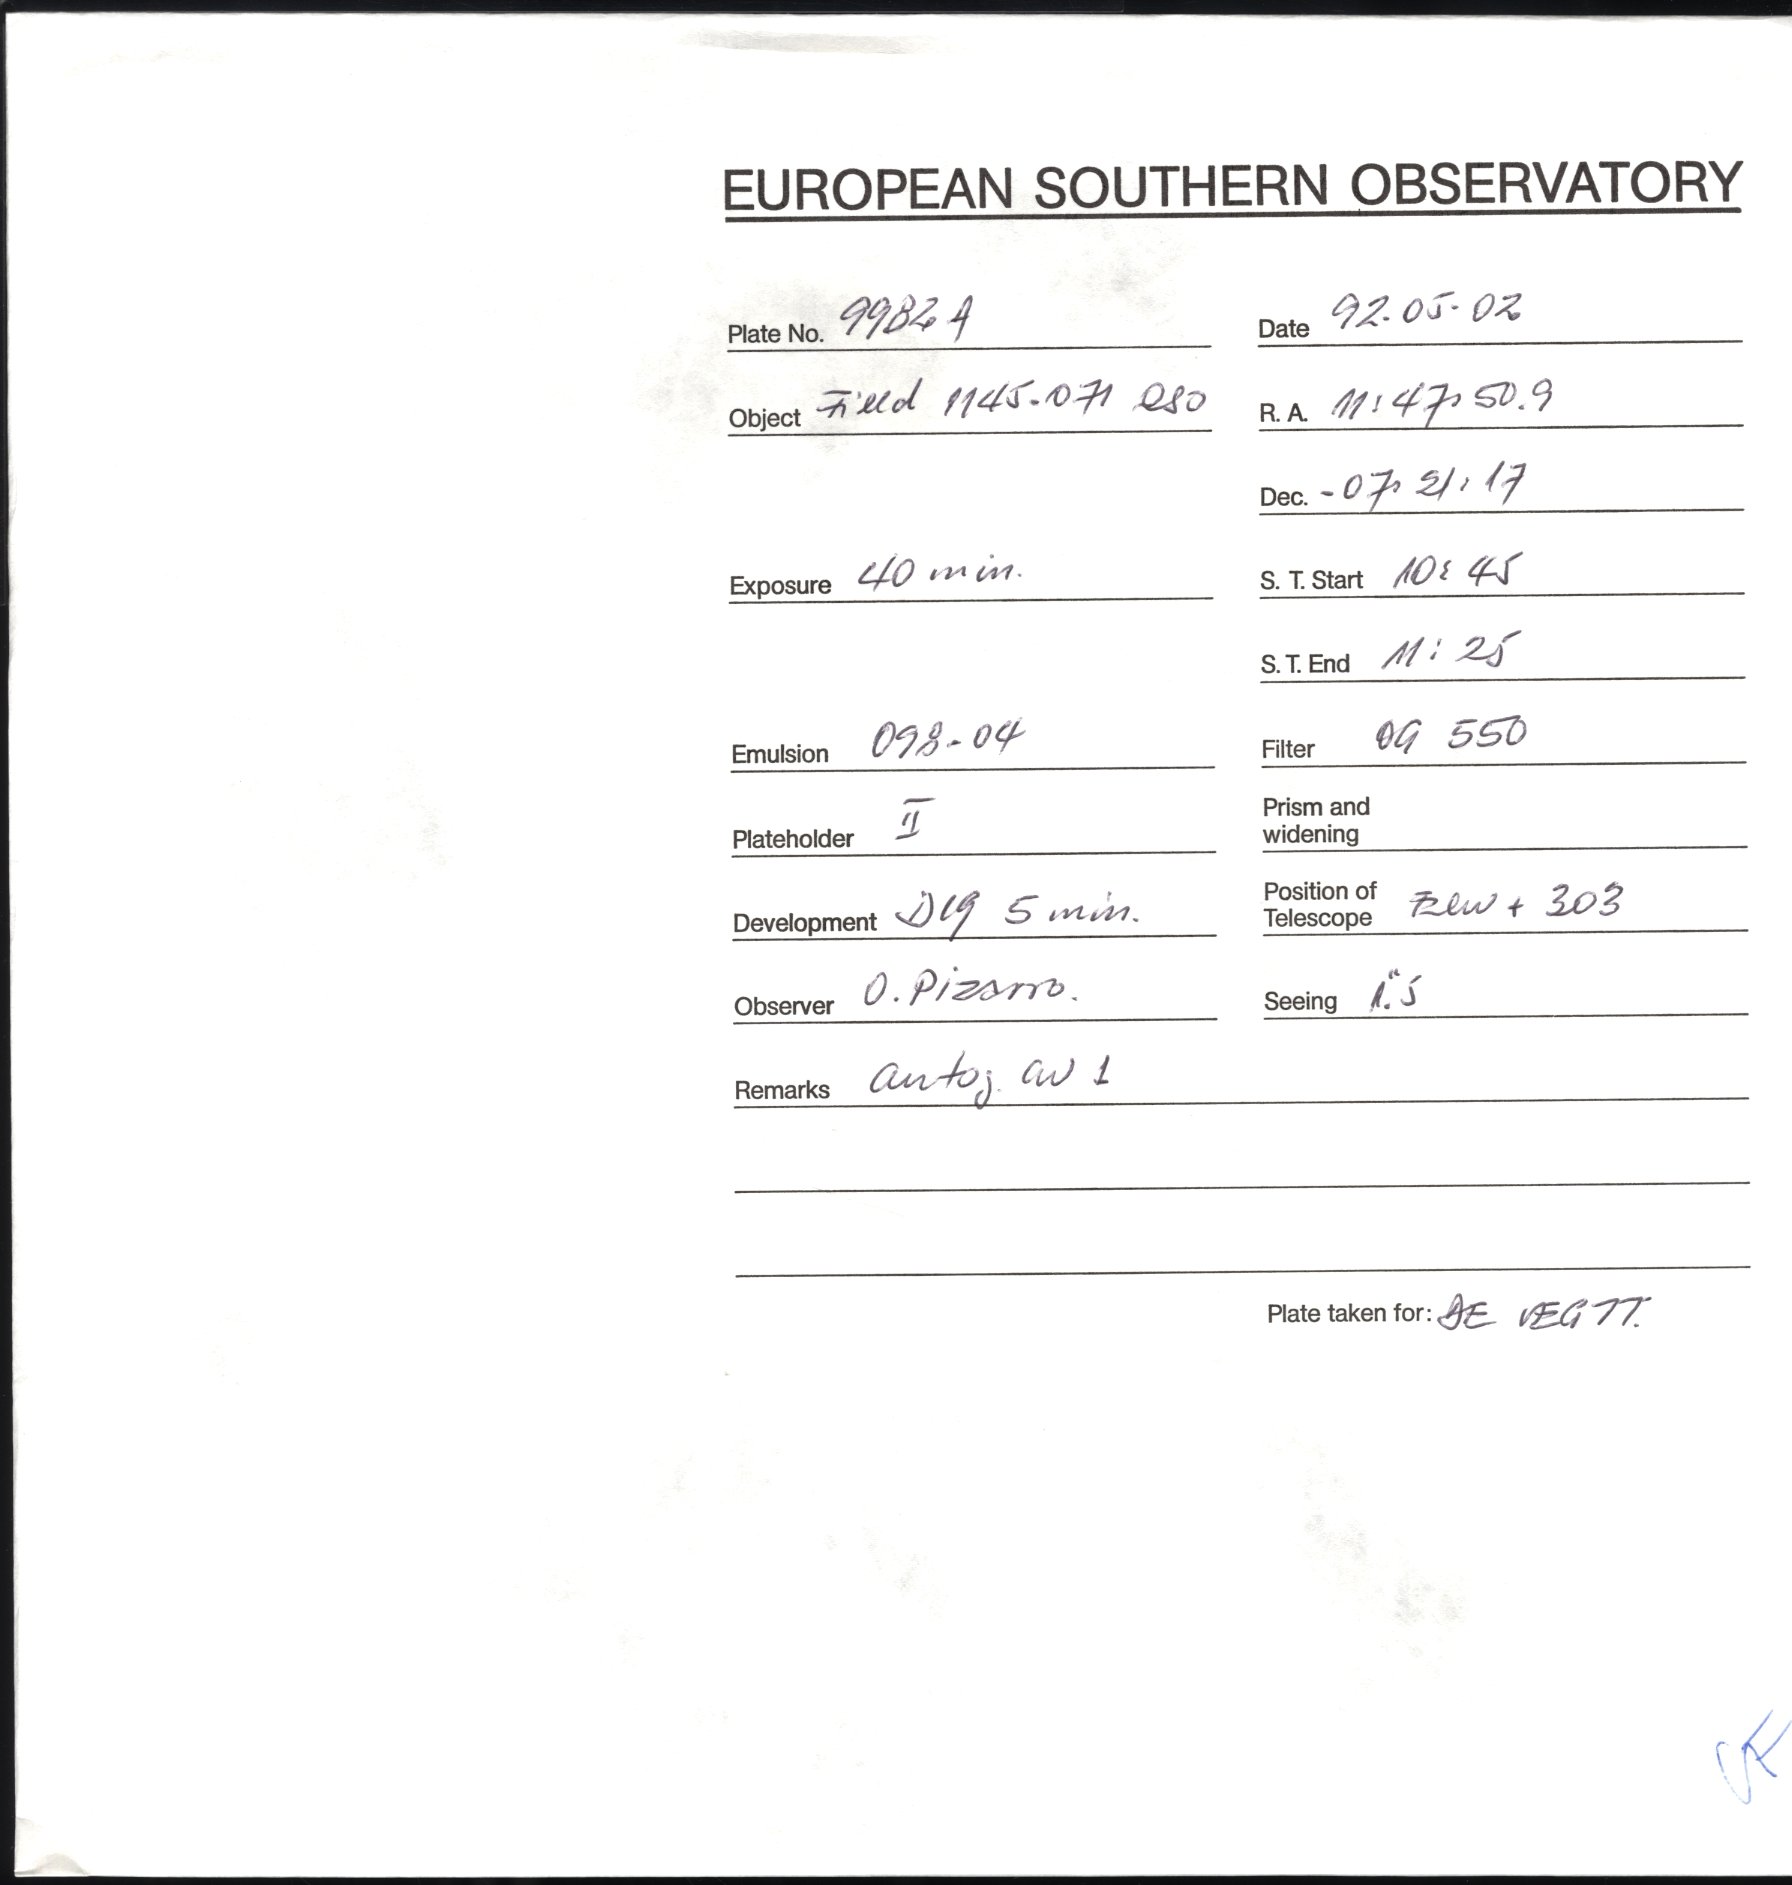 EUROPEAN SOUTHERN OBSERVATORY
Plate No. 9982 A Date 92.05.02
Object Field 1145-071 QSO R. A. 11:47:50.9
Dec. -07:21:17
Exposure 40 min. S. T. Start 10:45
S. T. End 11:25
Emulsion 098-04 Filter OG 550
Plateholder II Prism and
widening
Development D19 5 min. Position of
Telescope + 303
Observer O. Pizarro. Seeing 1."5
Remarks autog. av 1
Plate taken for: DE VEGTT.